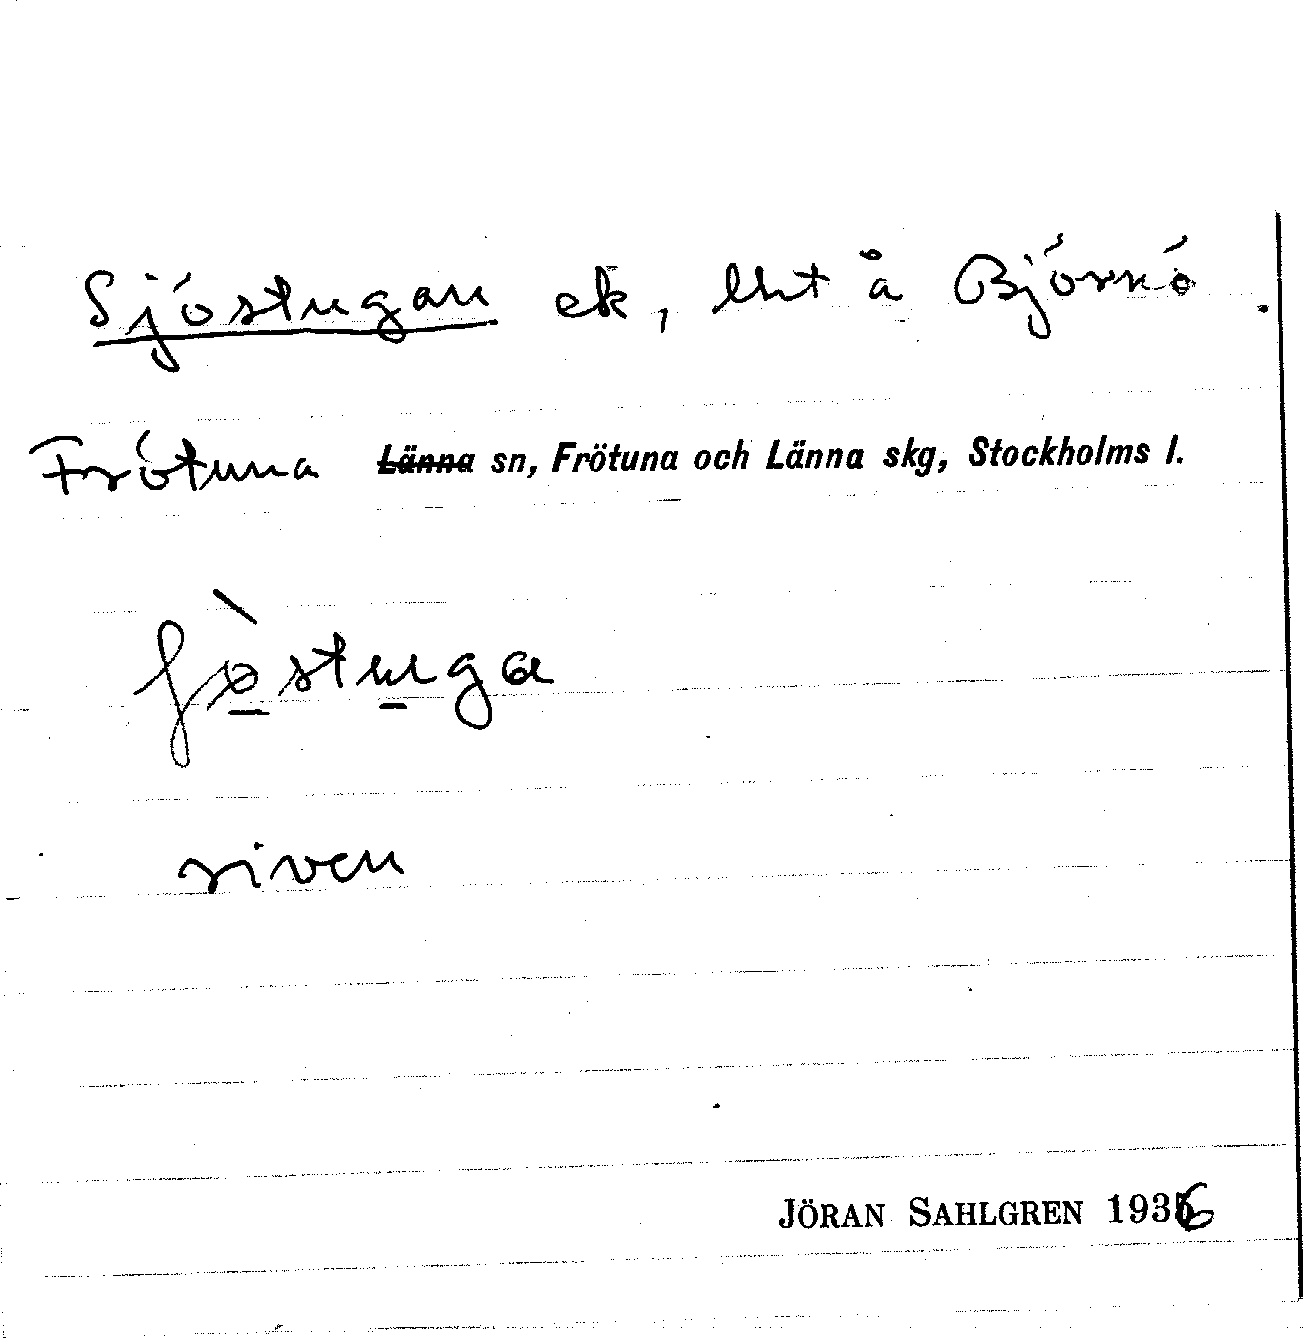 Sjöstugan ek, lht å Björkö.
Frötuna Länna sn, Frötuna och Länna skg, Stockholms l.
ʃø̀stuga
riven
JÖRAN SAHLGREN 1936